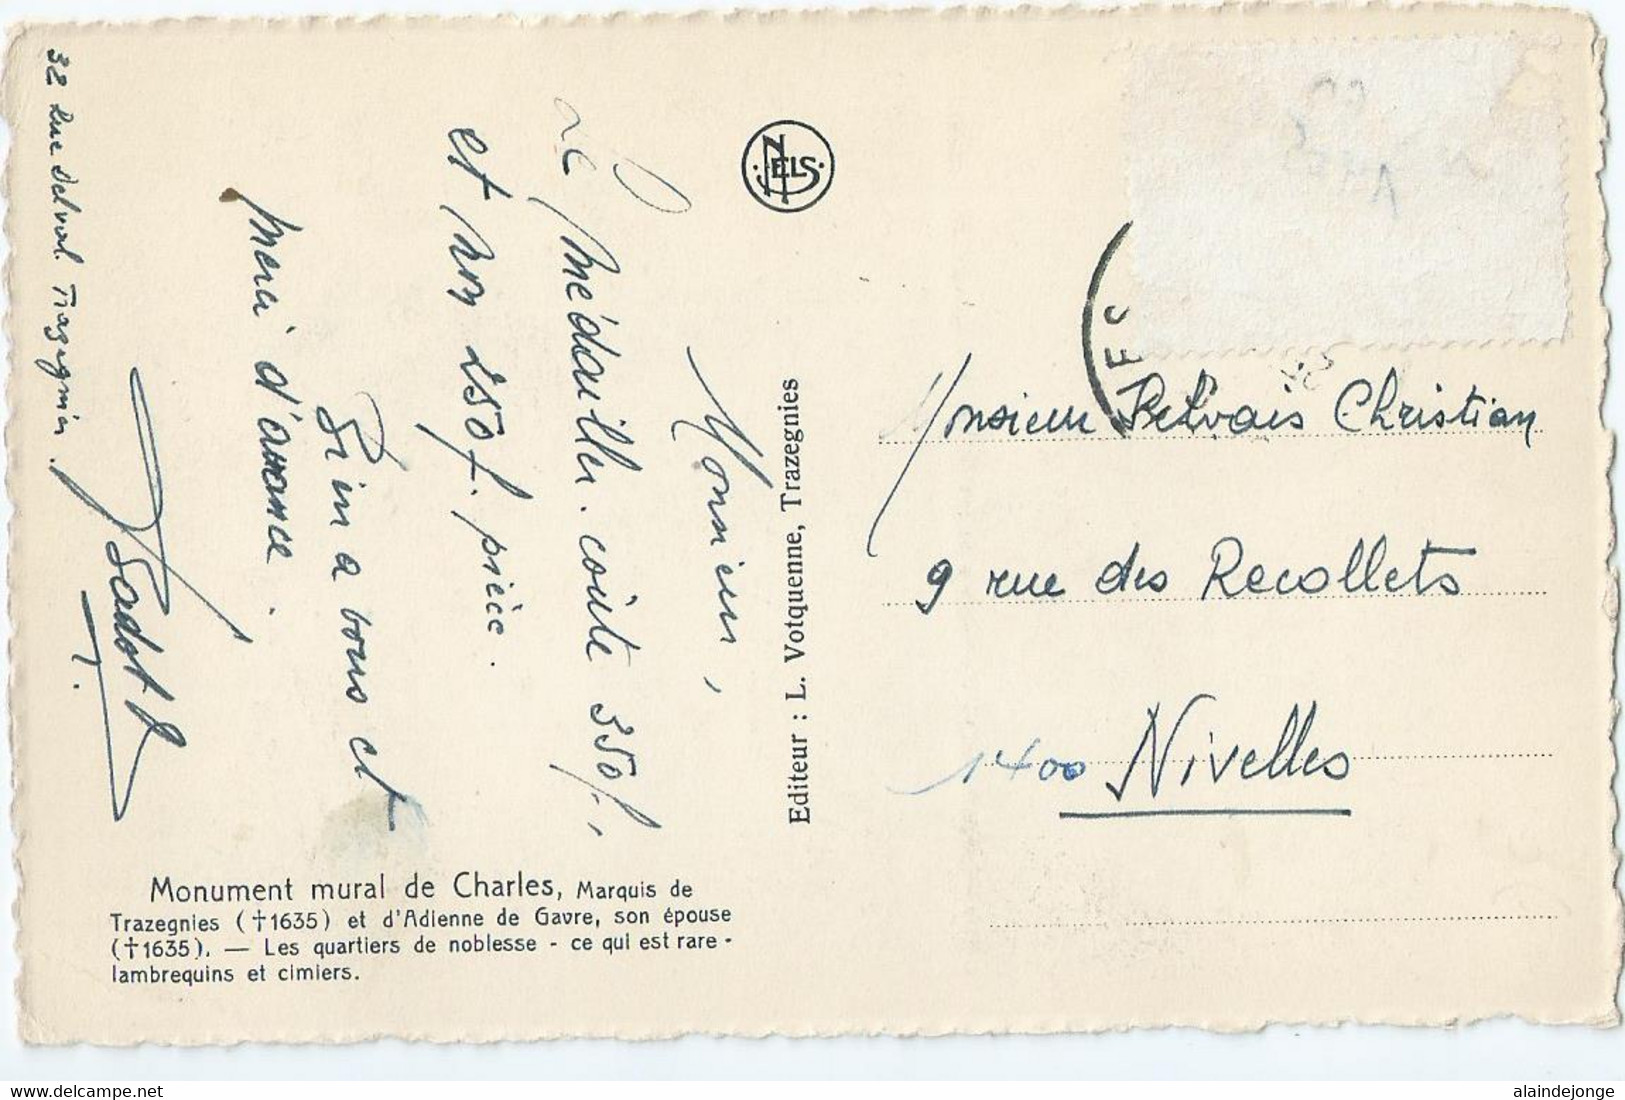 Monsieur,
Le médailler coûte 350f.
et non 250f. pièce.
Bien a vous et
merci d'avance.
Sadot
32 Rue Delval Trazegnies.
NELS
Editeur : L. Votquenne, Trazegnies
Monsieur Christian
9 rue des Recollets
1400 Nivelles
Monument mural de Charles, Marquis de
Trazegnies (†1635) et d'Adienne de Gavre, son épouse
(†1635). — Les quartiers de noblesse - ce qui est rare -
lambrequins et cimiers.
alaindejonge